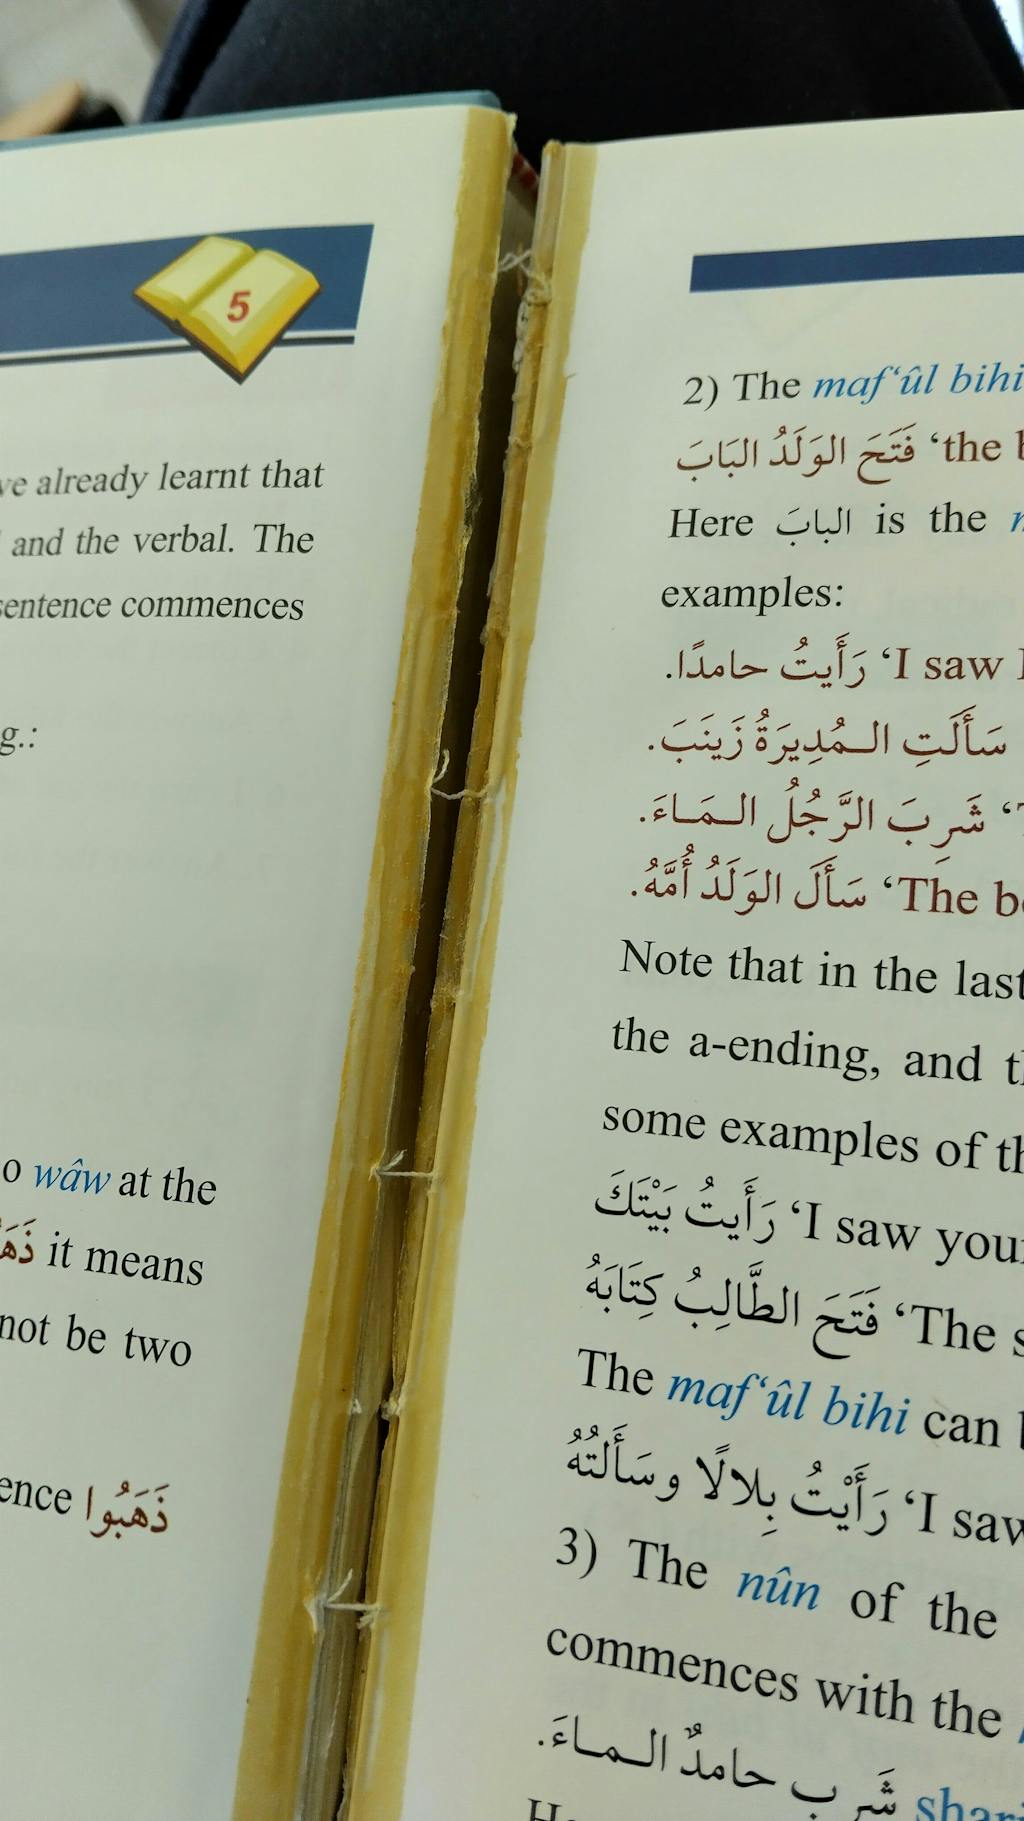 5
already learnt that
and the verbal. The
sentence commences
g.:
wâw at the
it means
not be two
ذَهَبُوا
2) The maf‘ûl bihi
فَتَحَ الوَلَدُ البَابَ ‘the
Here البابَ is the
examples:
رَأَيتُ حامدًا. ‘I saw
سَأَلَتِ الـمُدِيرَةُ زَينَبَ.
شَرِبَ الرَّجُلُ الـمَـاءَ.
سَأَلَ الوَلَدُ أُمَّهُ. ‘The
Note that in the last
the a-ending, and
some examples of
رَأَيتُ بَيْتَكَ ‘I saw
فَتَحَ الطَّالِبُ كِتَابَهُ ‘The
The maf‘ûl bihi can
رَأَيْتُ بِلالًا وسَأَلتُهُ ‘I saw
3) The nûn of the
commences with the
شَرِب حامدٌ الـمـاءَ.